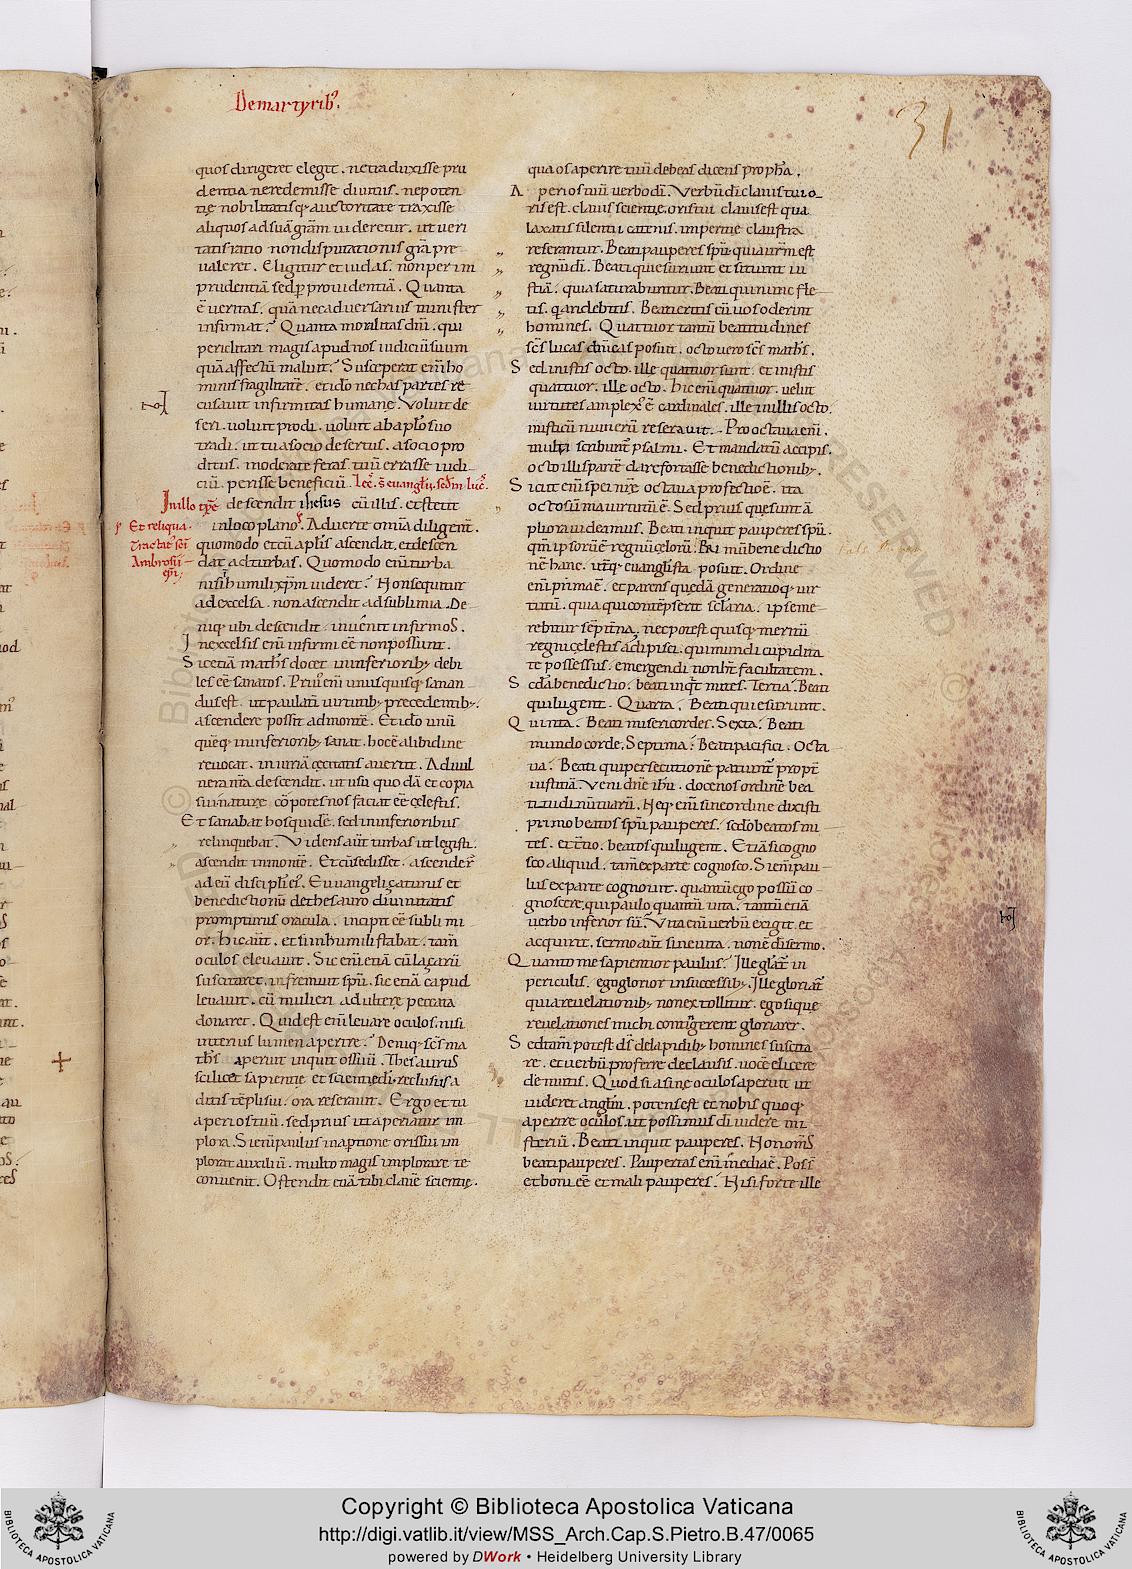 De martyrib;
31
quos dirigeret elegit. ne traduxisse pru
dentia ne redemisse diuitiis. ne poten
tię nobilitatisq; auctoritate traxisse
aliquos ad suā grām uideretur. ut ueri
tatis ratio non disputationis grā pre
ualeret. Eligitur et iudas. non per im
prudentiā sed p prouidentiā. Quanta
ē ueritas. quā nec aduersarius minister
infirmat? Quanta moralitas dñi. qui
periclitari magis apud nos iudiciū suum
quā affectū maluit? Susceperat eni ho
minis fragilitatē. et ido nec has partes re
cusauit infirmitatis humanę. Voluit de
seri. uoluit prodi. uoluit ab aplo suo
tradi. ut tu a socio desertus. a socio pro
ditus. moderate feras. tuū errasse iudi
ciū. perisse beneficiū. Lec. s. euanglii. scdm luc.
In illo tpre descendit ihesus cū illis. et stetit
Et reliqua. in loco plano. Aduerte omnia diligent.
Tractat sci quomodo et cū aplis ascendat. et descen
Ambrosii dat ad turbas. Quomodo eni turba
epi nisi humili xpm uideret? Non sequitur
ad excelsa. non ascendit ad sublimia. De
niq; ubi descendit. inuenit infirmos.
In excelsis eni infirmi eē non possunt.
Sic etiā maths docet in inferiorib; debi
les eē sanatos. Pri eni unusquisq; sanan
dus est. ut paulati uirtutib; precedentib;.
ascendere possit ad montē. Et ido unū
quēq; in inferiorib; sanat. hoc ē a libidine
reuocat. iniuriā cęcitatis auertit. Ad uul
nera nra descendit. ut usu quodā et copia
suę naturę cōpotes nos faciat eē cęlestis.
Et sanabat hos quidē. sed in inferioribus
relinquebat. Videns aut turbas ut legisti.
ascendit in montē. Et cū sedisset. ascender
ad eū discipli ei. Euuangelicaturus et
benedictionū de thesauro diuinitatis
prompturus oracula. incipit eē subli mi
or. Hic aut. et si in humili stabat. tam
oculos eleuauit. Sic eni etiā cū lazarū
suscitaret. infremuit spu. sic etiā caput
leuauit. cū mulieri adulterę peccata
donaret. Quid est eni leuare oculos. nisi
interius lumen aperire? Deniq; scs ma
ths aperuit inquit os suū. Thesaurus
scilicet sapientię et scientię di. reclusus a
ditis tēpli sui. ora reserauit. Ergo et tu
aperi os tuū. sed prius ut aperiatur im
plora. Si eni paulus in aptione oris sui im
plorat auxiliū. multo magis implorare te
conuenit. Ostendit etiā tibi clauē scientię.
qua os aperire tuū debeas dicens propha.
Aperi os tuū uerbo di. Verbū di clauis tui o
ris est. clauis scientię. oris tui clauis est qua
laxatis silentii catenis. imperitię claustra
reserantur. Beati pauperes spu. quia urm est
regnū di. Beati qui esuriunt et sitiunt iu
stiā. quia saturabuntur. Beati qui nunc fle
tis. qa ridebitis. Beati eritis cū uos oderint
homines. Quattuor tantū beatitudines
scs lucas dñicas posuit. octo uero scs maths.
Sed in istis octo. ille quattuor sunt. et in istis
quattuor. ille octo. Hic eni quattuor. uelut
uirtutes amplex ē cardinales. ille in illis octo.
misticū numerū reserauit. Pro octaua eni.
multi scribunt psalmi. Et mandatū accipis.
octo illis partē dare fortasse benedictionib;.
Sicut eni spei nrę octaua pfectio ē. ita
octo sūma uirtutū ē. Sed prius quę sunt ā
pliora uideamus. Beati inquit pauperes spu.
qm ipsorū ē regnū cęlorū. Primā benedictio
nē hanc. uterq; euanglista posuit. Ordine
eni prima ē. et parens quędā generatioq; uir
tutū. quia qui contēpserit sclaria. ipse me
rebitur sēpitna. nec potest quisq; meritū
regni cęlestis adipisci. qui mundi cupidita
te possessus. emergendi non ht facultatem.
Scda benedictio. beati inqt mites. Tertia. Beati
qui lugent. Quarta. Beati qui esuriunt.
Quinta. Beati misericordes. Sexta. Beati
mundo corde. Septima. Beati pacifici. Octa
ua. Beati qui persecutionē patiunt propt
iustitiā. Veni dne ihu. doce nos ordinē bea
titudinū tuarū. Neq; eni sine ordine dixisti
primo beatos spu pauperes. scdo beatos mi
tes. et tio. beatos qui lugent. Etiā si cogno
sco aliquid. tam ex parte cognosco. Si eni pau
lus ex parte cognouit. quantū ego possū co
gnoscere. qui paulo quantū uita. tantū etiā
uerbo inferior sū. Vita eni uerbū exigit. et
acquirit. sermo aut sine uita. non ē di sermo.
Quanto me sapientior paulus. Ille gliat in
periculis. ego glorior in successib;. Ille gloriat
quia reuelationib; non extollitur. ego si que
reuelationes michi contigerent gloriarer.
Sed tam potest ds de lapidib; homines suscita
re. et uerbū proferre de clausis. uocē elicere
de mutis. Quod si asinę oculos aperuit ut
uideret anglm. potens est et nobis quoq;
aperire oculos. ut possimus di uidere mi
steriū. Beati inquit pauperes. Non oms
beati pauperes. Paupertas eni media ē. Poss
et boni eē et mali pauperes. Nisi forte ille
Copyright © Biblioteca Apostolica Vaticana
http://digi.vatlib.it/view/MSS_Arch.Cap.S.Pietro.B.47/0065
powered by DWork • Heidelberg University Library
BIBLIOTECA APOSTOLICA VATICANA
BIBLIOTECA APOSTOLICA VATICANA